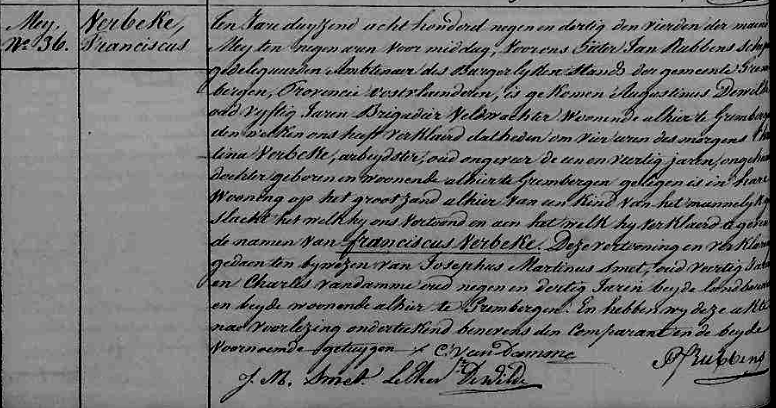 Mey.
N° 36.
Verbeke,
Franciscus
Ten Jare duyzend acht honderd negen en dertig den vierden der maend
Mey ten negen uren voor middag, voor ons Pieter Jan Rubbens
gedelegueerden Ambtenaer des Burgerlyken Stands der gemeente
bergen, Provincie oostvlaenderen, is gekomen Augustinus Dewilde
oud vyftig Jaren Brigadier Veldwachter Woonende alhier te Grembergen
den welken ons heeft verklaerd dat heden om vier uren des morgens
lina Verbeke, arbeydster, oud ongeveer de een en veertig jaren,
dochter geboren en woonende alhier te Grembergen gelegen is in hare
Wooning op het groot zand alhier van een Kind van het mannelyk
slacht het welk hy ons vertoond en aen het welk hy verklaerd te geven
de namen van franciscus Verbeke. Deze vertooning en
gedaen ten bywezen van Josephus Martinus Smet, oud veertig
en Charles vandamme oud negen en dertig Jaren beyde
en beyde woonende alhier te Grembergen. En hebben wy deze akte
nae Voorlezing onderteekend benevens den Comparant en de beyde
Voornoemde getuygen C: Van Damme
PJ Rubbens
J. M. Smet. Dewilde